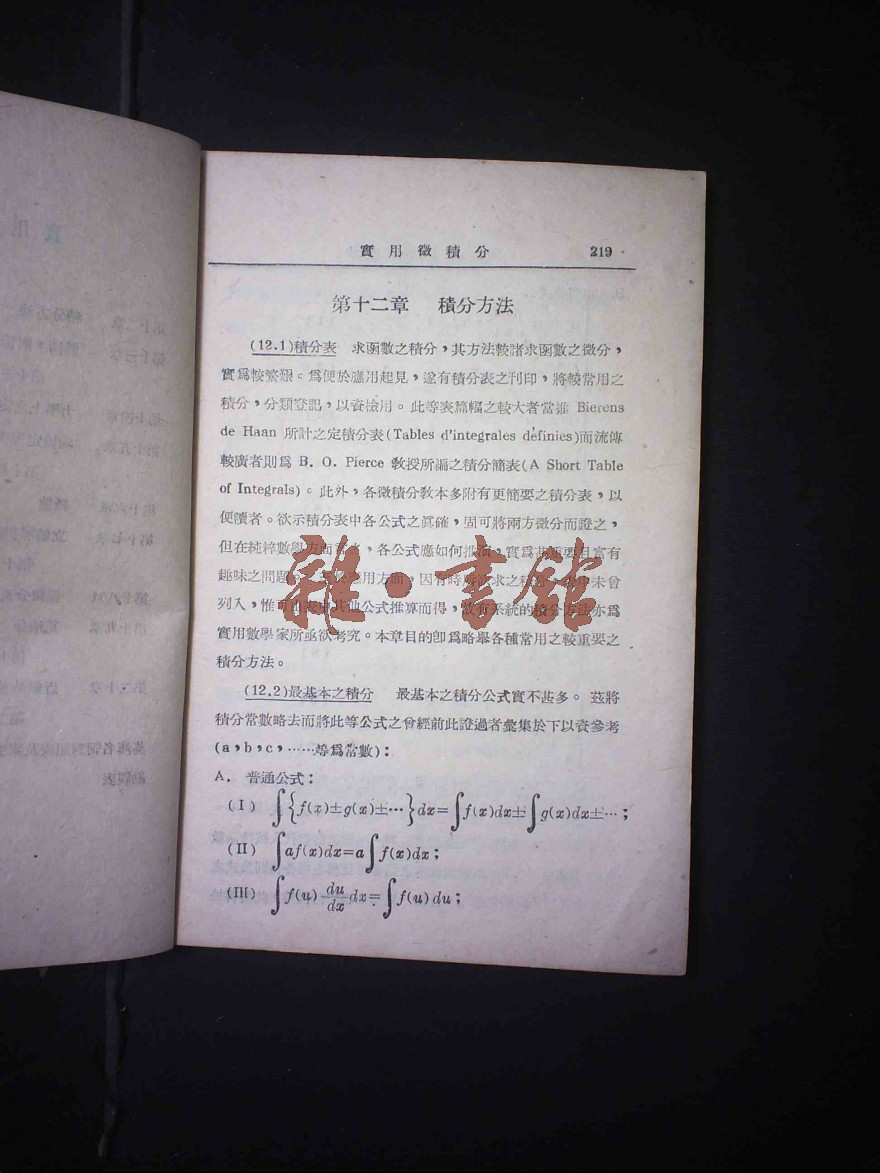 實用微積分 219
第十二章 積分方法
(12.1)積分表 求函數之積分,其方法較諸求函數之微分,
實爲較繁艱。爲便於應用起見,遂有積分表之刊印,將較常用之
積分,分類登記,以資檢用。此等表篇幅之較大者當推 Bierens
de Haan 所計之定積分表(Tables d'integrales définies)而流傳
較廣者則爲 B. O. Pierce 敎授所編之積分簡表(A Short Table
of Integrals)。此外,各微積分敎本多附有更簡要之積分表,以
便讀者。欲示積分表中各公式之眞確,固可將兩方微分而證之,
但在純粹數學方面言之,各公式應如何推演,實爲 且富有
趣味之問題。 應用方面,因有時所 求之積分, 中未曾
列入,惟可由表中其他公式推算而得,故有系統的積分方法亦爲
實用數學家所亟欲考究。本章目的卽爲略舉各種常用之較重要之
積分方法。
(12.2)最基本之積分 最基本之積分公式實不甚多。茲將
積分常數略去而將此等公式之曾經前此證過者彙集於下以資參考
(a,b,c,……等爲常數):
A. 普通公式:
(I) ∫{f(x)±g(x)±…}dx=∫f(x)dx±∫g(x)dx±…;
(II) ∫af(x)dx=a∫f(x)dx;
(III) ∫f(u) du/dx dx=∫f(u)du;
雜·書館